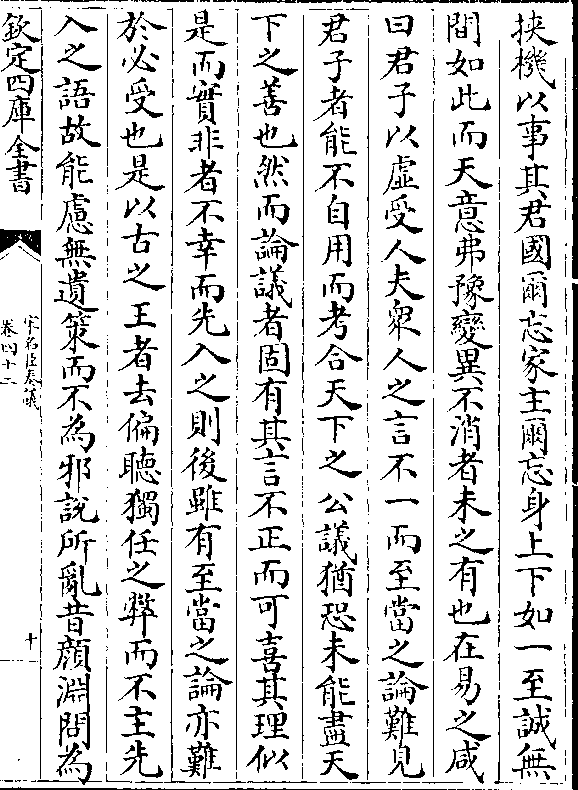 挟機以事其君國爾忘家主爾忘身上下如一至誠無
間如此而天意弗豫變異不消者未之有也在易之咸
曰君子以虛受人夫衆人之言不一而至當之論難見
君子者能不自用而考合天下之公議猶恐未能盡天
下之善也然而論議者固有其言不正而可喜其理似
是而實非者不幸而先入之則後雖有至當之論亦難
於必受也是以古之王者去偏聽獨任之弊而不主先
入之語故能慮無遺策而不為邪說所亂昔顔淵問為
欽定四庫全書
宋名臣奏議
卷四十二
十